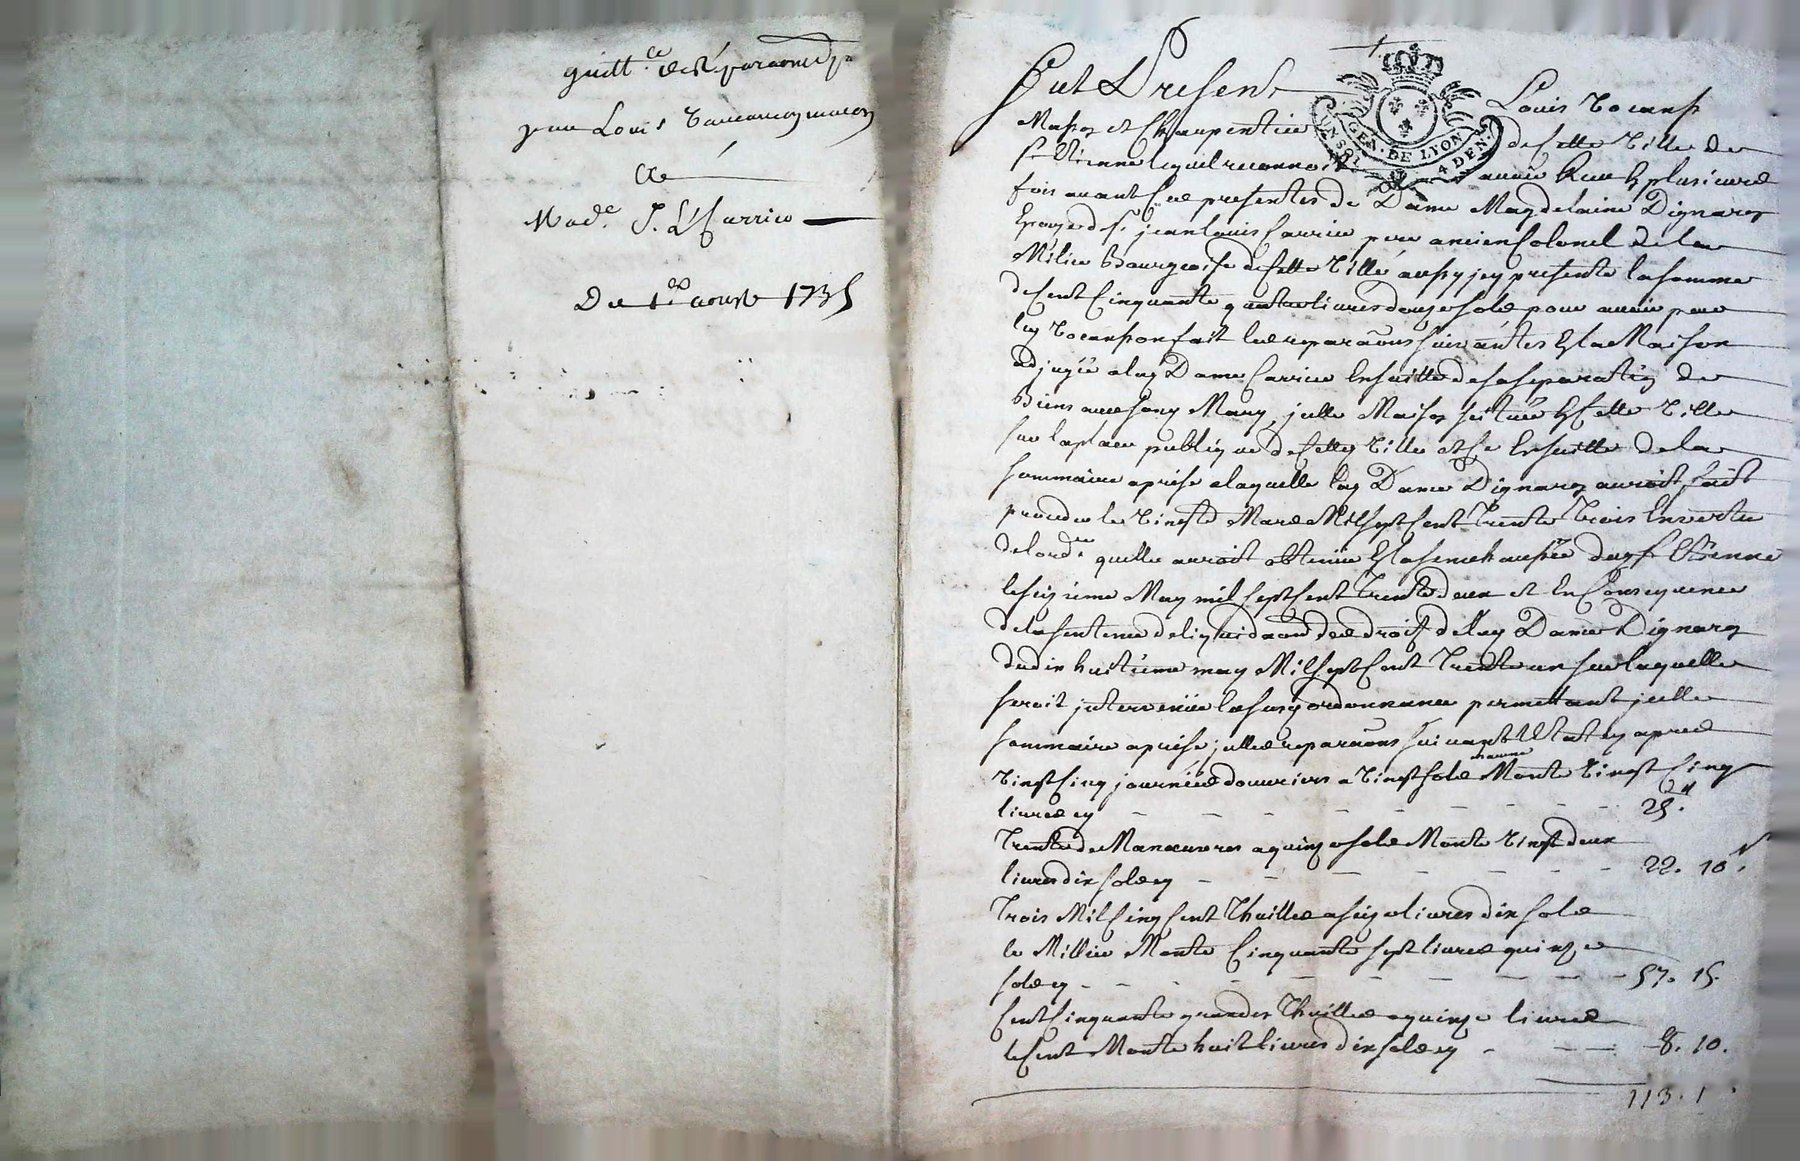 quitt.ce de réparaons
par Louis macon
A
Mad.e J. L. Carrier
Du 1.er aoust 1735
Fut Present Louis
Masson et Charpentier de cette Ville de
GEN. DE LYON
4 DEN.
St Etienne lequel reconnoit avoir Reçu En plusieurs
fois avant ces presentes de Dame Magdelaine Dignaron
Epouse de Sr jean Louis Carrier pere ancien Colonel de la
Milice Bourgeoise de cette Ville aussy jcy presente la somme
de Cent Cinquante livres douze sols pour avoir par
led fait les reparaons suivantes En la Maison
adjugée a lad Dame Carrier Ensuitte de sa separation de
Biens avec son Mary, jcelle Maison scituée En cette Ville
sur la place publique de cette Ville et ce Ensuitte de la
sommaire aprise a laquelle lad Dame Dignaron auroit fait
proceder le Vingt Mars Mil sept Cent Trente Trois En vertu
de lord.ce quelle auroit obtenüe En la senechaussée dud St Etienne
le seizième May mil sept Cent Trente deux et En Consequence
de la sentence de liquidaon des droits de lad Dame Dignaron
du dix huitième may Mil sept Cent Trente un sur laquelle
seroit jntervenüe la susd ordonnance permettant jcelle
sommaire aprise, jcelles reparaons suivant l'Etat cy apres
Vingt Cinq journées douvriers a Vingt sols Monte Vingt Cinq
livres cy - - - - - - 25.#
Trente de Manœuvres a quinze sols Monte Vingt deux
livres dix sols cy - - - - - - 22. 10.s
Trois Mil Cinq Cent Thuilles a seize livres dix sols
le Millier Monte Cinquante sept livres quinze
sols cy - - - - - - 57. 15.
Cent Cinquante grandes Thuilles a quinze livres
le Cent Monte huit livres dix sols cy - - - 8. 10.
113. 1